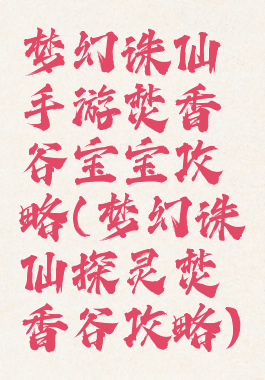 梦幻诛仙
手游焚香
谷宝宝攻
略(梦幻诛
仙探灵焚
香谷攻略)